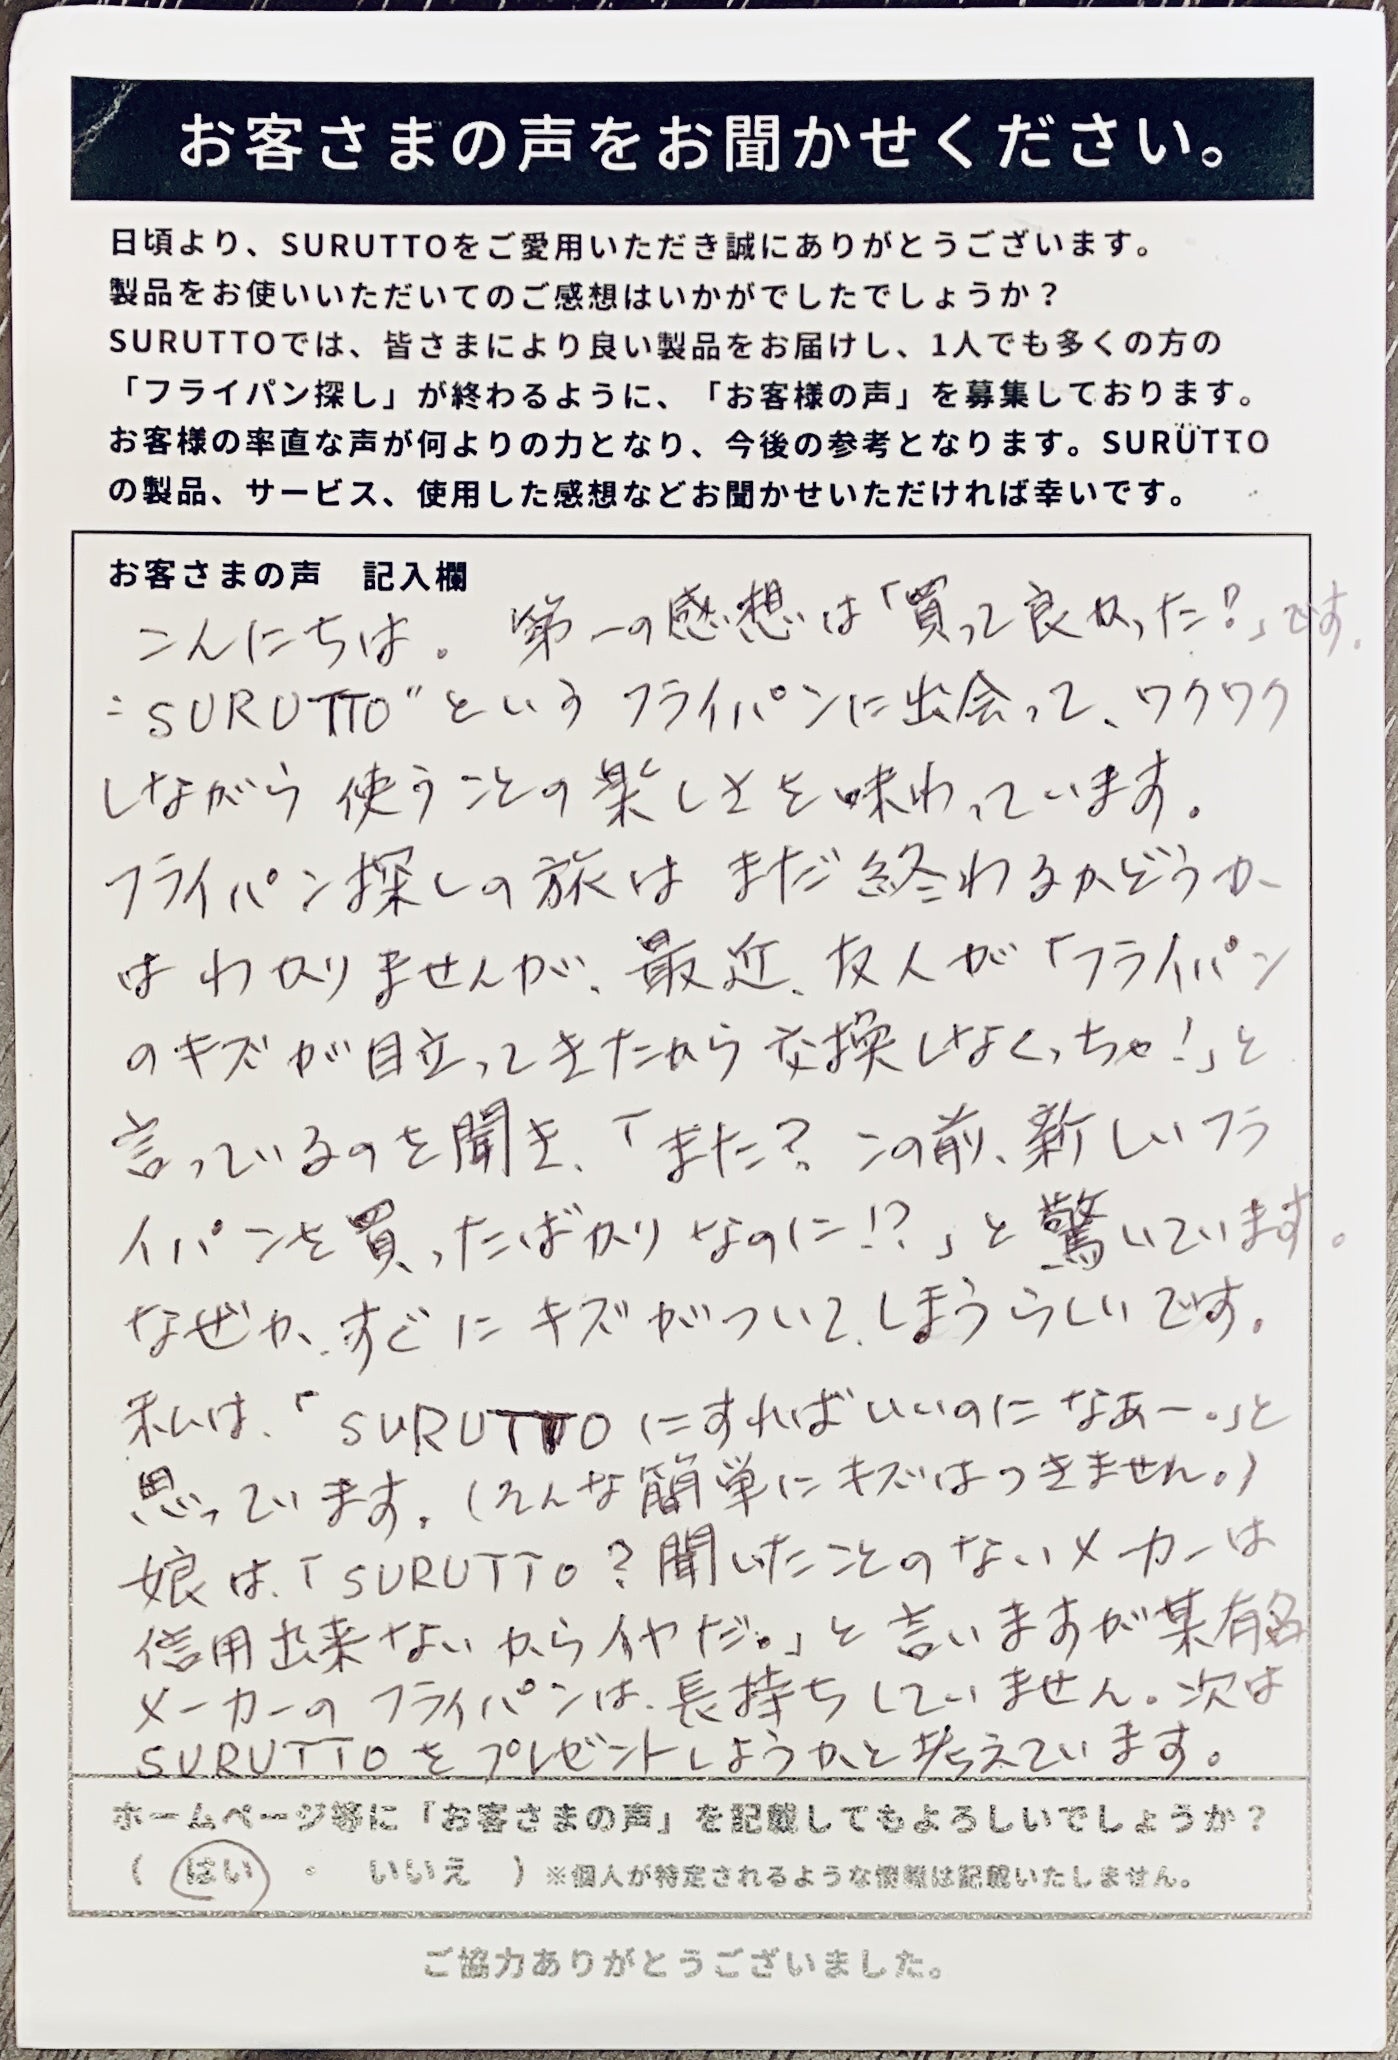 お客さまの声をお聞かせください。
日頃より、SURUTTOをご愛用いただき誠にありがとうございます。
製品をお使いいただいてのご感想はいかがでしたでしょうか？
SURUTTOでは、皆さまにより良い製品をお届けし、1人でも多くの方の
「フライパン探し」が終わるように、「お客様の声」を募集しております。
お客様の率直な声が何よりの力となり、今後の参考となります。SURUTTO
の製品、サービス、使用した感想などお聞かせいただければ幸いです。
お客さまの声　記入欄
こんにちは。第一の感想は「買って良かった！」です。
"SURUTTO"というフライパンに出会って、ワクワク
しながら使うことの楽しさを味わっています。
フライパン探しの旅はまだ終わるかどうか
はわかりませんが、最近、友人が「フライパン
のキズが目立ってきたから交換しなくっちゃ！」と
言っているのを聞き、「また？この前、新しいフラ
イパンを買ったばかりなのに！？」と驚いています。
なぜか、すぐにキズがついてしまうらしいです。
私は、「SURUTTOにすればいいのになあー。」と
思っています。（そんな簡単にキズはつきません。）
娘は、「SURUTTO？聞いたことのないメーカーは
信用出来ないからイヤだ。」と言いますが某有名
メーカーのフライパンは、長持ちしていません。次は
SURUTTOをプレゼントしようかと考えています。
ホームページ等に「お客さまの声」を記載してもよろしいでしょうか？
（　はい　・　いいえ　）※個人が特定されるような情報は記載いたしません。
ご協力ありがとうございました。